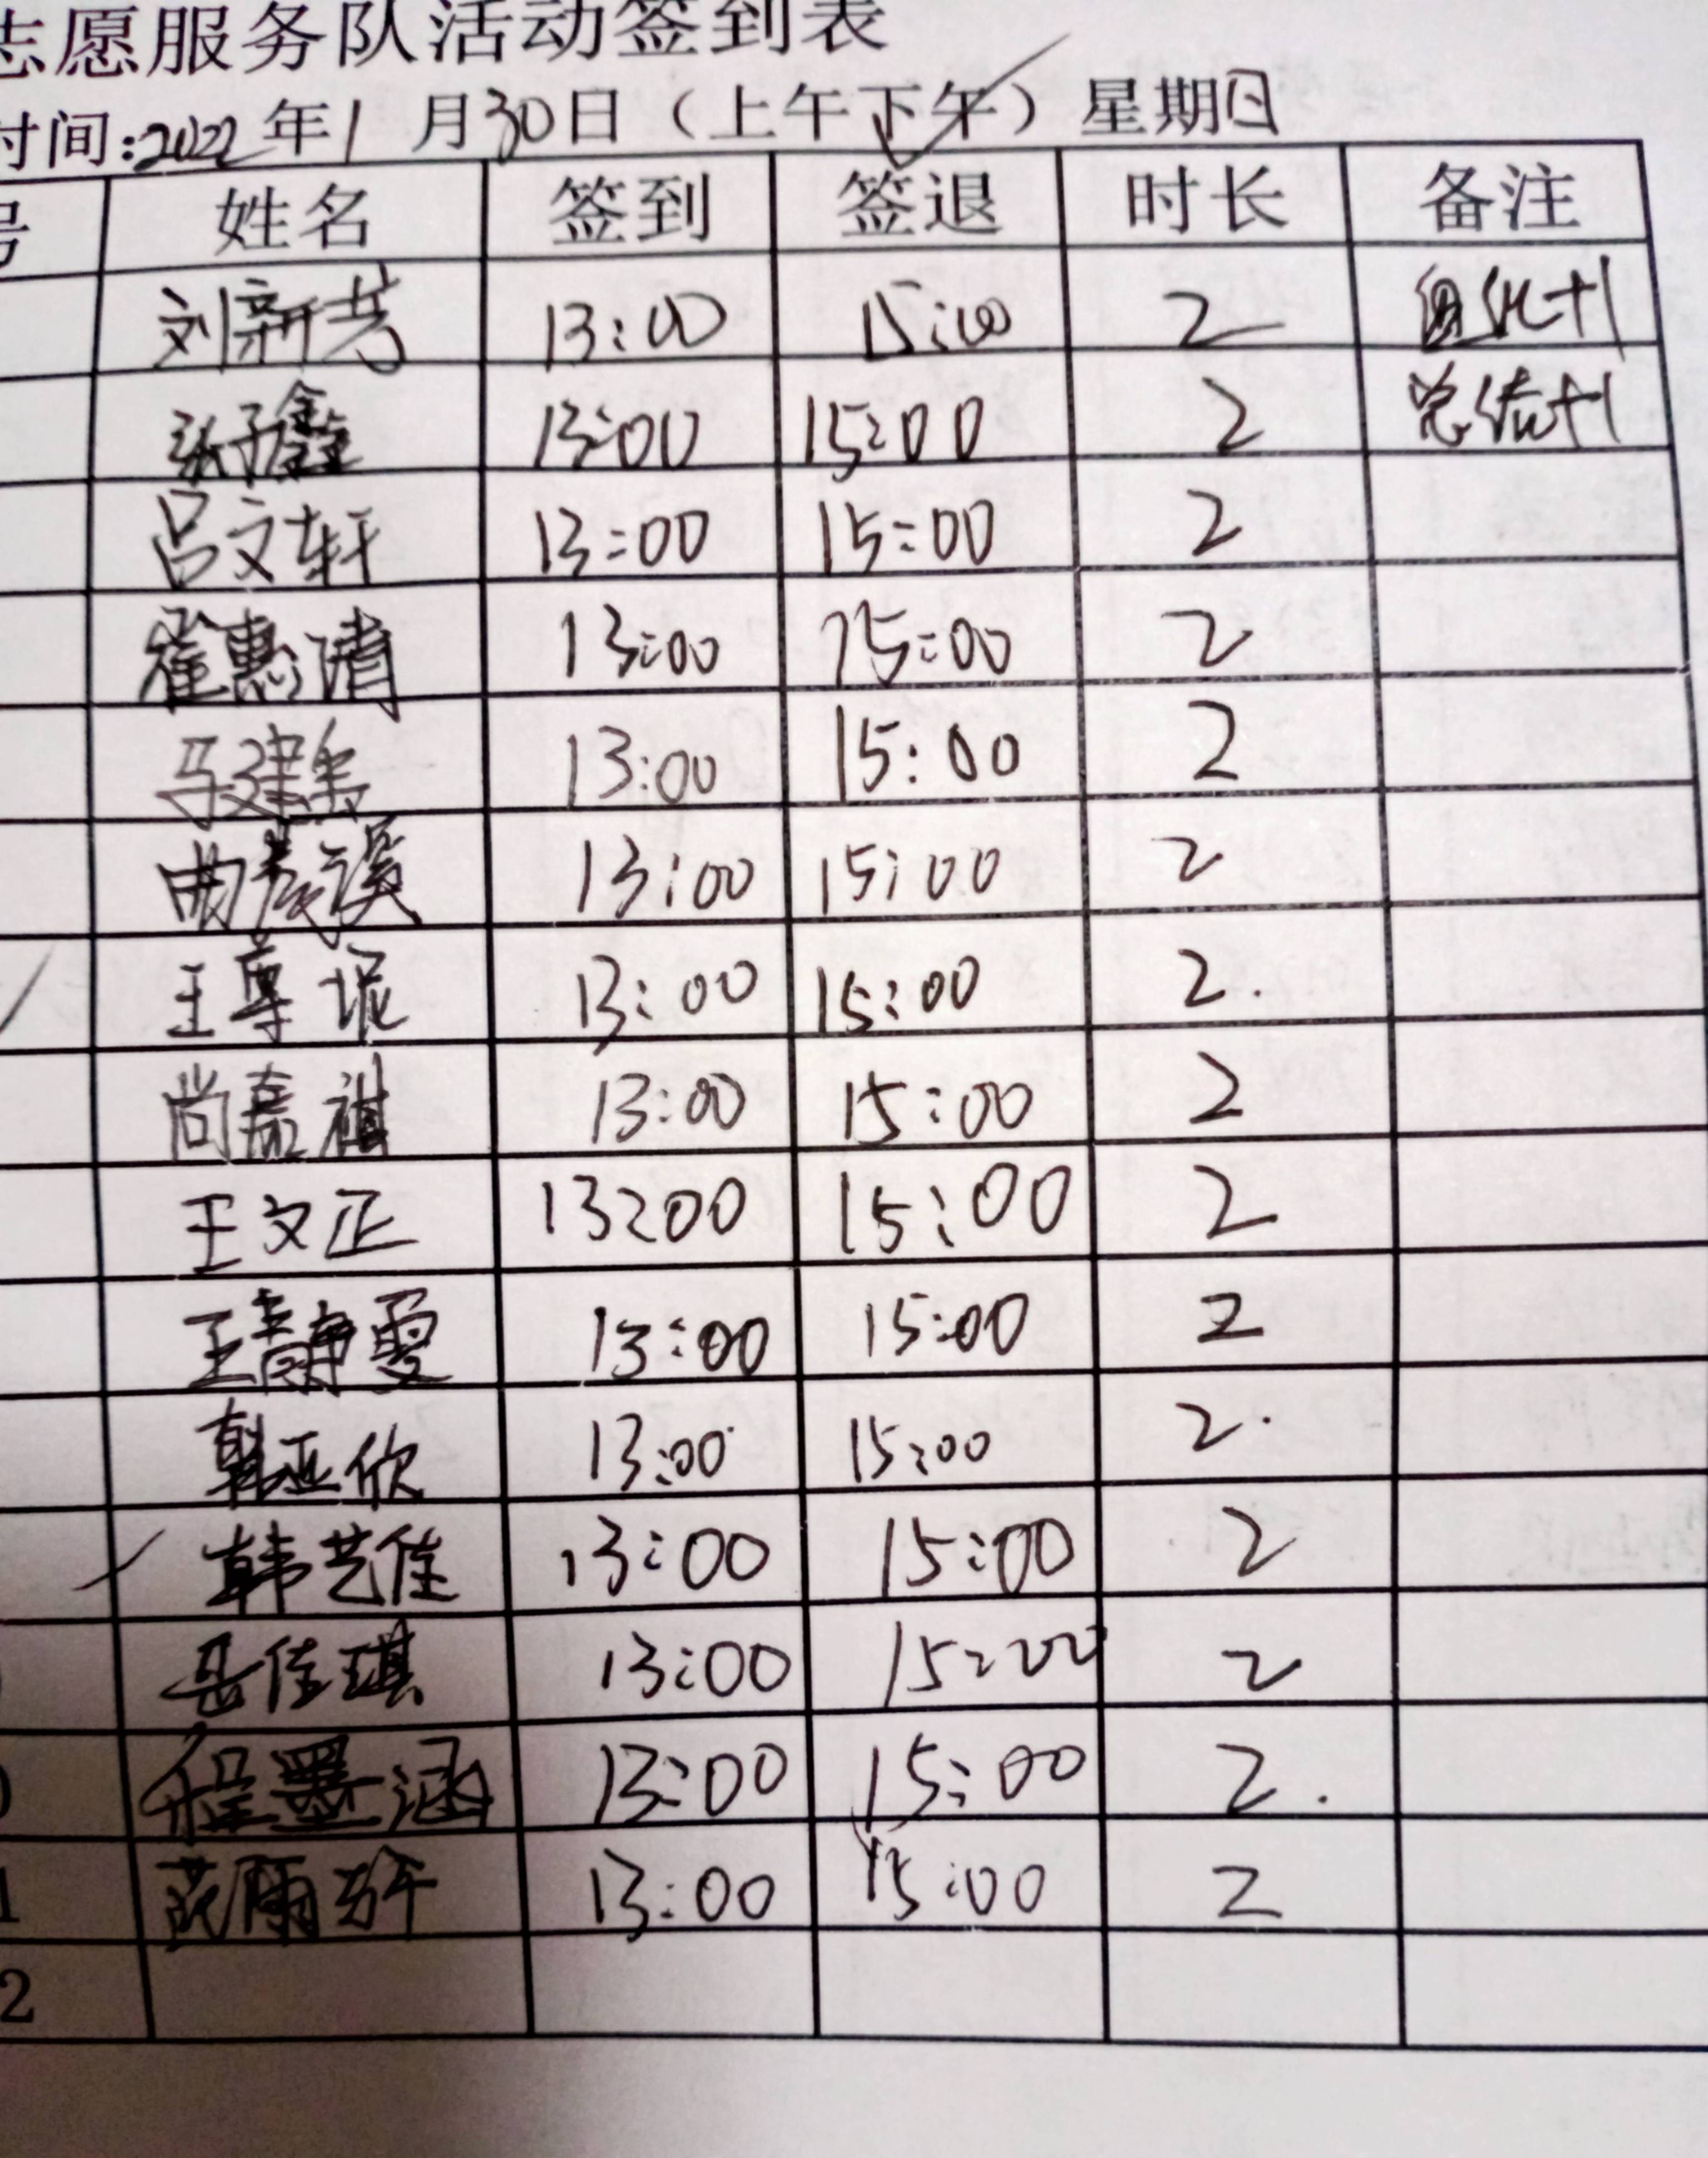 志愿服务队活动签到表
时间:2022年1月30日（上午下午）星期日
号 姓名 签到 签退 时长 备注
刘新芳 13:00 15:00 2 +1
张子鑫 13:00 15:00 2 总结+1
吕文轩 13:00 15:00 2
崔惠清 13:00 15:00 2
马建 13:00 15:00 2
曲溪 13:00 15:00 2
王尊 13:00 15:00 2
尚嘉祺 13:00 15:00 2
王文正 13:00 15:00 2
王静雯 13:00 15:00 2
韩亚欣 13:00 15:00 2
韩艺佳 13:00 15:00 2
岳佳琪 13:00 15:00 2
程墨涵 13:00 15:00 2
1 范雨 13:00 15:00 2
2